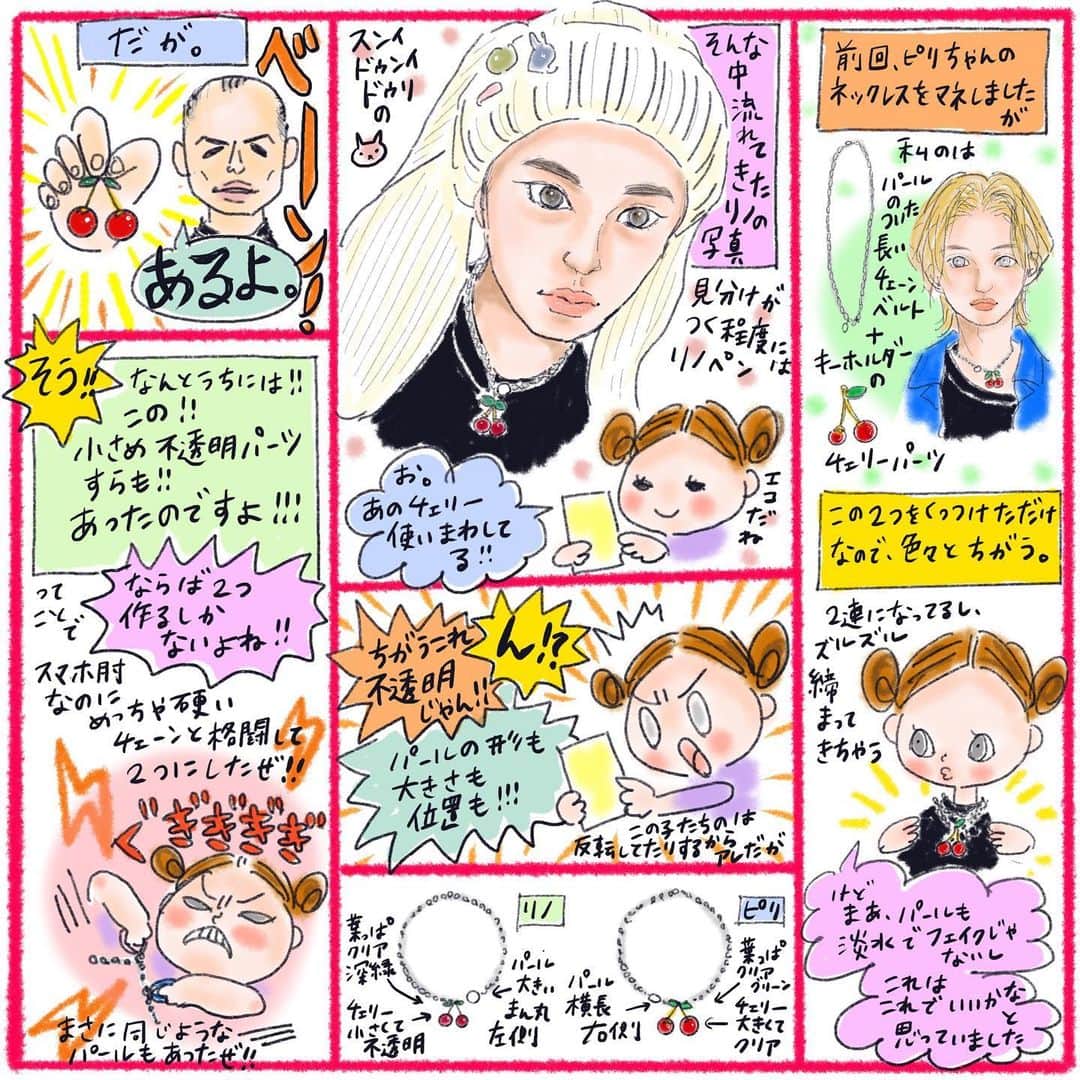 前回、ピリちゃんの
ネックレスをマネしました
が
私のは
パール
の
ついた
長い
チェーン
ベルト
+
キーホルダー
の
チェリーパーツ
この2つをくっつけただけ
なので、色々とちがう。
2連になってるし、
ズルズル
締
まって
きちゃう
けど
まあ、パールも
淡水でフェイクじゃ
ないし
これは
これでいいかな
と
思っていました
そんな
中
流れて
きた
リノの
写真
スンイ
ドゥンイ
ドゥリ
の
見分けが
つく程度には
リノペン
エコだね
お。
あのチェリー
使いまわして
る!!
ん!?
ちがうこれ
不透明
じゃん!!
パールの形も
大きさも
位置も!!!
この子たちのは
反転してたりするから
アレだが
ピリ
葉っぱ
クリア
グリーン
チェリー
大きくて
クリア
パール
横長
右側
リノ
パール
大きい
まん丸
左側
葉っぱ
クリア
深緑
チェリー
小さくて
不透明
だが。
べーーン!!
あるよ。
そう!!
なんとうちには!!
この!!
小さめ不透明パーツ
すらも!!
あったのですよ!!!
ならば2つ
作るしか
ないよね!!
って
ことで
スマホ肘
なのに
めっちゃ硬い
チェーンと格闘して
2つにしたぜ!!
ぐぎぎぎぎ
まさに同じような
パールもあったぜ!!